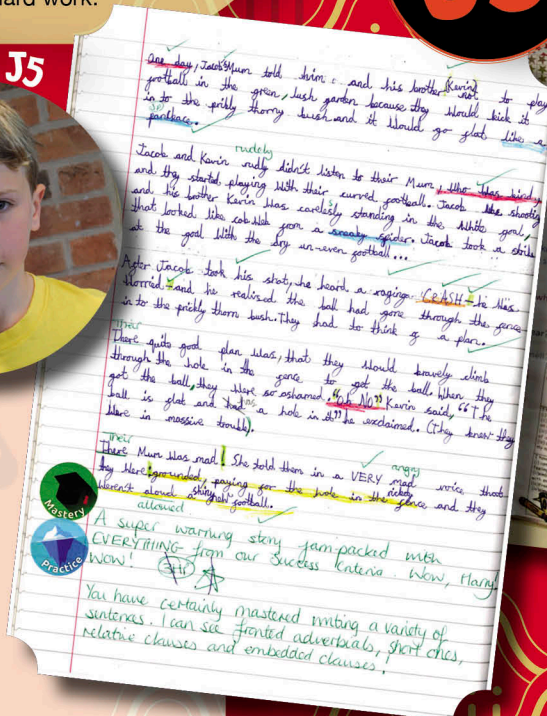 hard work.
J5
One day, Jacob's Mum told him and his brother Kevin not to play
football in the green, lush garden because they would kick it
in to the prikly thorny bush and it would go flat like a
sp
pankace.
rudely
Jacob and Kevin rudly didn't listen to their Mum, who was kind,
and they started playing with their curved football. Jacob was shooting
and his bother Kevin was carelesly standing in the white goal,
that looked like cob web from a sneaky spider. Jacob took a strike
at the goal with the dry un-even football...
After Jacob took his shot, he heard a raging CRASH - he was
Worried - and he realised the ball had gone through the fence
in to the prickly thorn bush. They had to think of a plan.
Their
There quite good plan was, that they would bravely climb
through the hole in the fence to get the ball. When they
got the ball, they were so ashamed. "Oh NO" Kevin said, "The
ball is flat and has a hole in it" he exclaimed. (They knew they
were in massive trouble).
Their
There Mum was mad! She told them in a VERY mad voice that
angry
they were: grounded, paying for the hole in the rickety fence and they
weren't aloud a shiny new football.
allowed
Mastery
Practice
A super warning story jam-packed with
EVERYTHING from our Success Criteria. Wow, Harry!
WOW!
5HP
You have certainly mastered writing a variety of
sentences. I can see fronted adverbials, short ones,
relative clauses and embedded clauses.